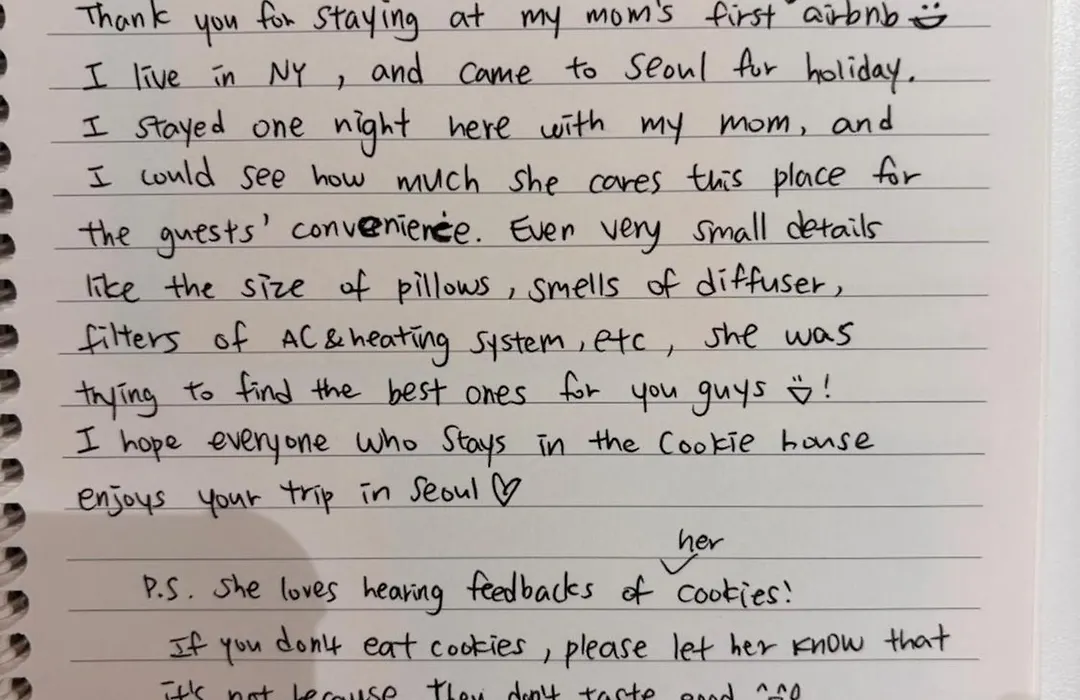 Thank you for staying at my mom's first airbnb
I live in NY, and came to Seoul for holiday.
I stayed one night here with my mom, and
I could see how much she cares this place for
the guests' convenience. Even very small details
like the size of pillows, smells of diffuser,
filters of AC & heating system, etc, she was
trying to find the best ones for you guys !
I hope everyone who stays in the Cookie house
enjoys your trip in Seoul ♡
her
P.S. She loves hearing feedbacks of cookies!
If you don't eat cookies, please let her know that
it's not because they don't taste good ^^